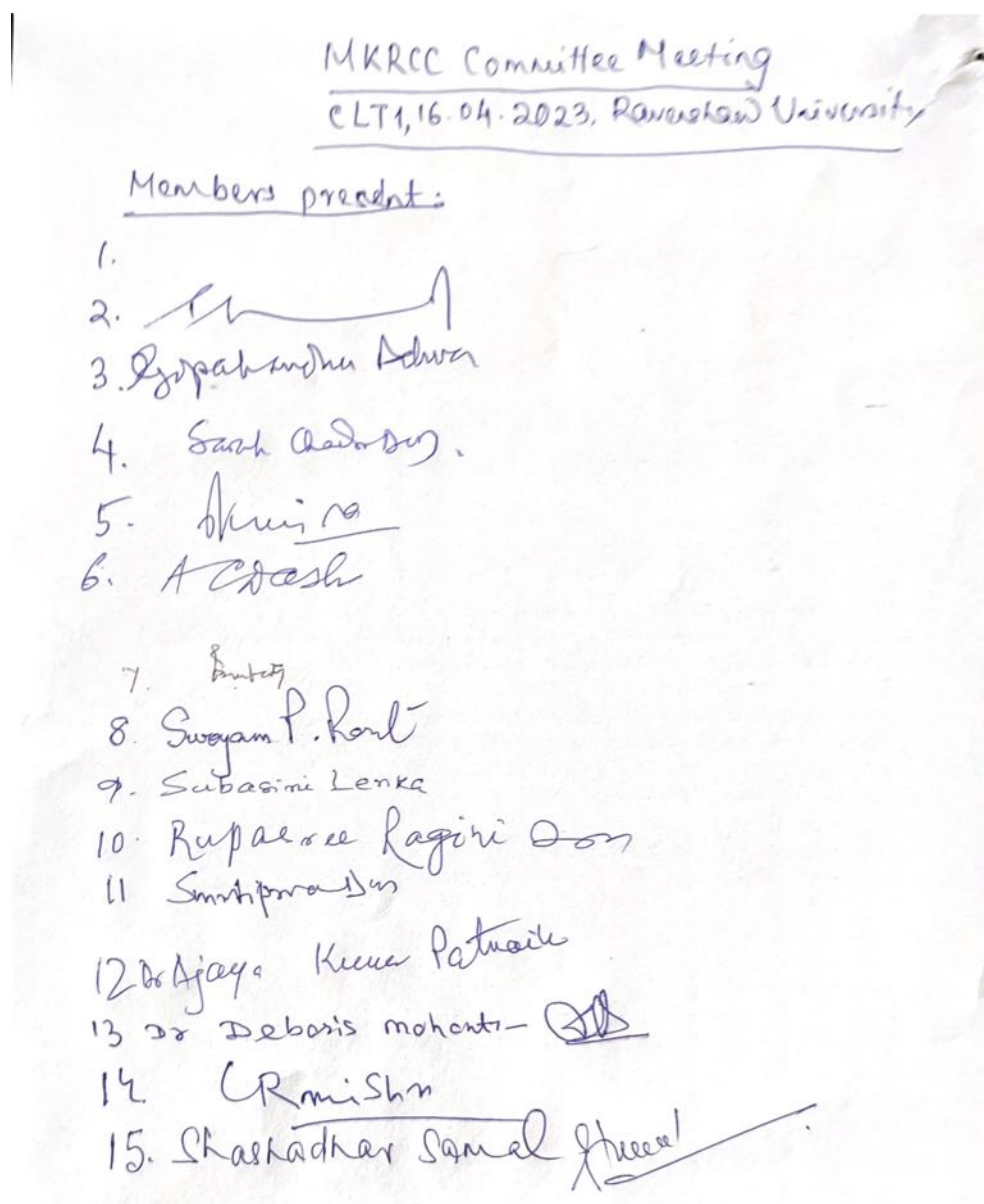 MKRCC Committee Meeting
CLT1, 16.04.2023. Ravenshaw University
Members present:
1.
2.
3. Gopabandhu
4. Sarat
5.
6. A C Dash
7.
8. Swayam P. Rout
9. Subasini Lenka
10. Rupasree Ragini Das
11 Smitiprava Das
12 Dr Ajaya Kumar Patnaik
13 Dr Debasis mohanti
14 CR mishra
15. Shashadhar Samal